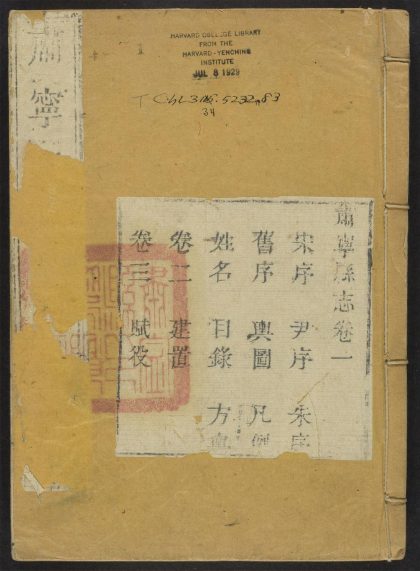 HARVARD COLLEGE LIBRARY
FROM THE
HARVARD-YENCHING
INSTITUTE
JUL 8 1929
肅寧縣志卷一
宋序 尹序 朱序
舊序 輿圖 凡例
姓名 目錄 方輿
卷二 建置
卷三 賦役
肅寧